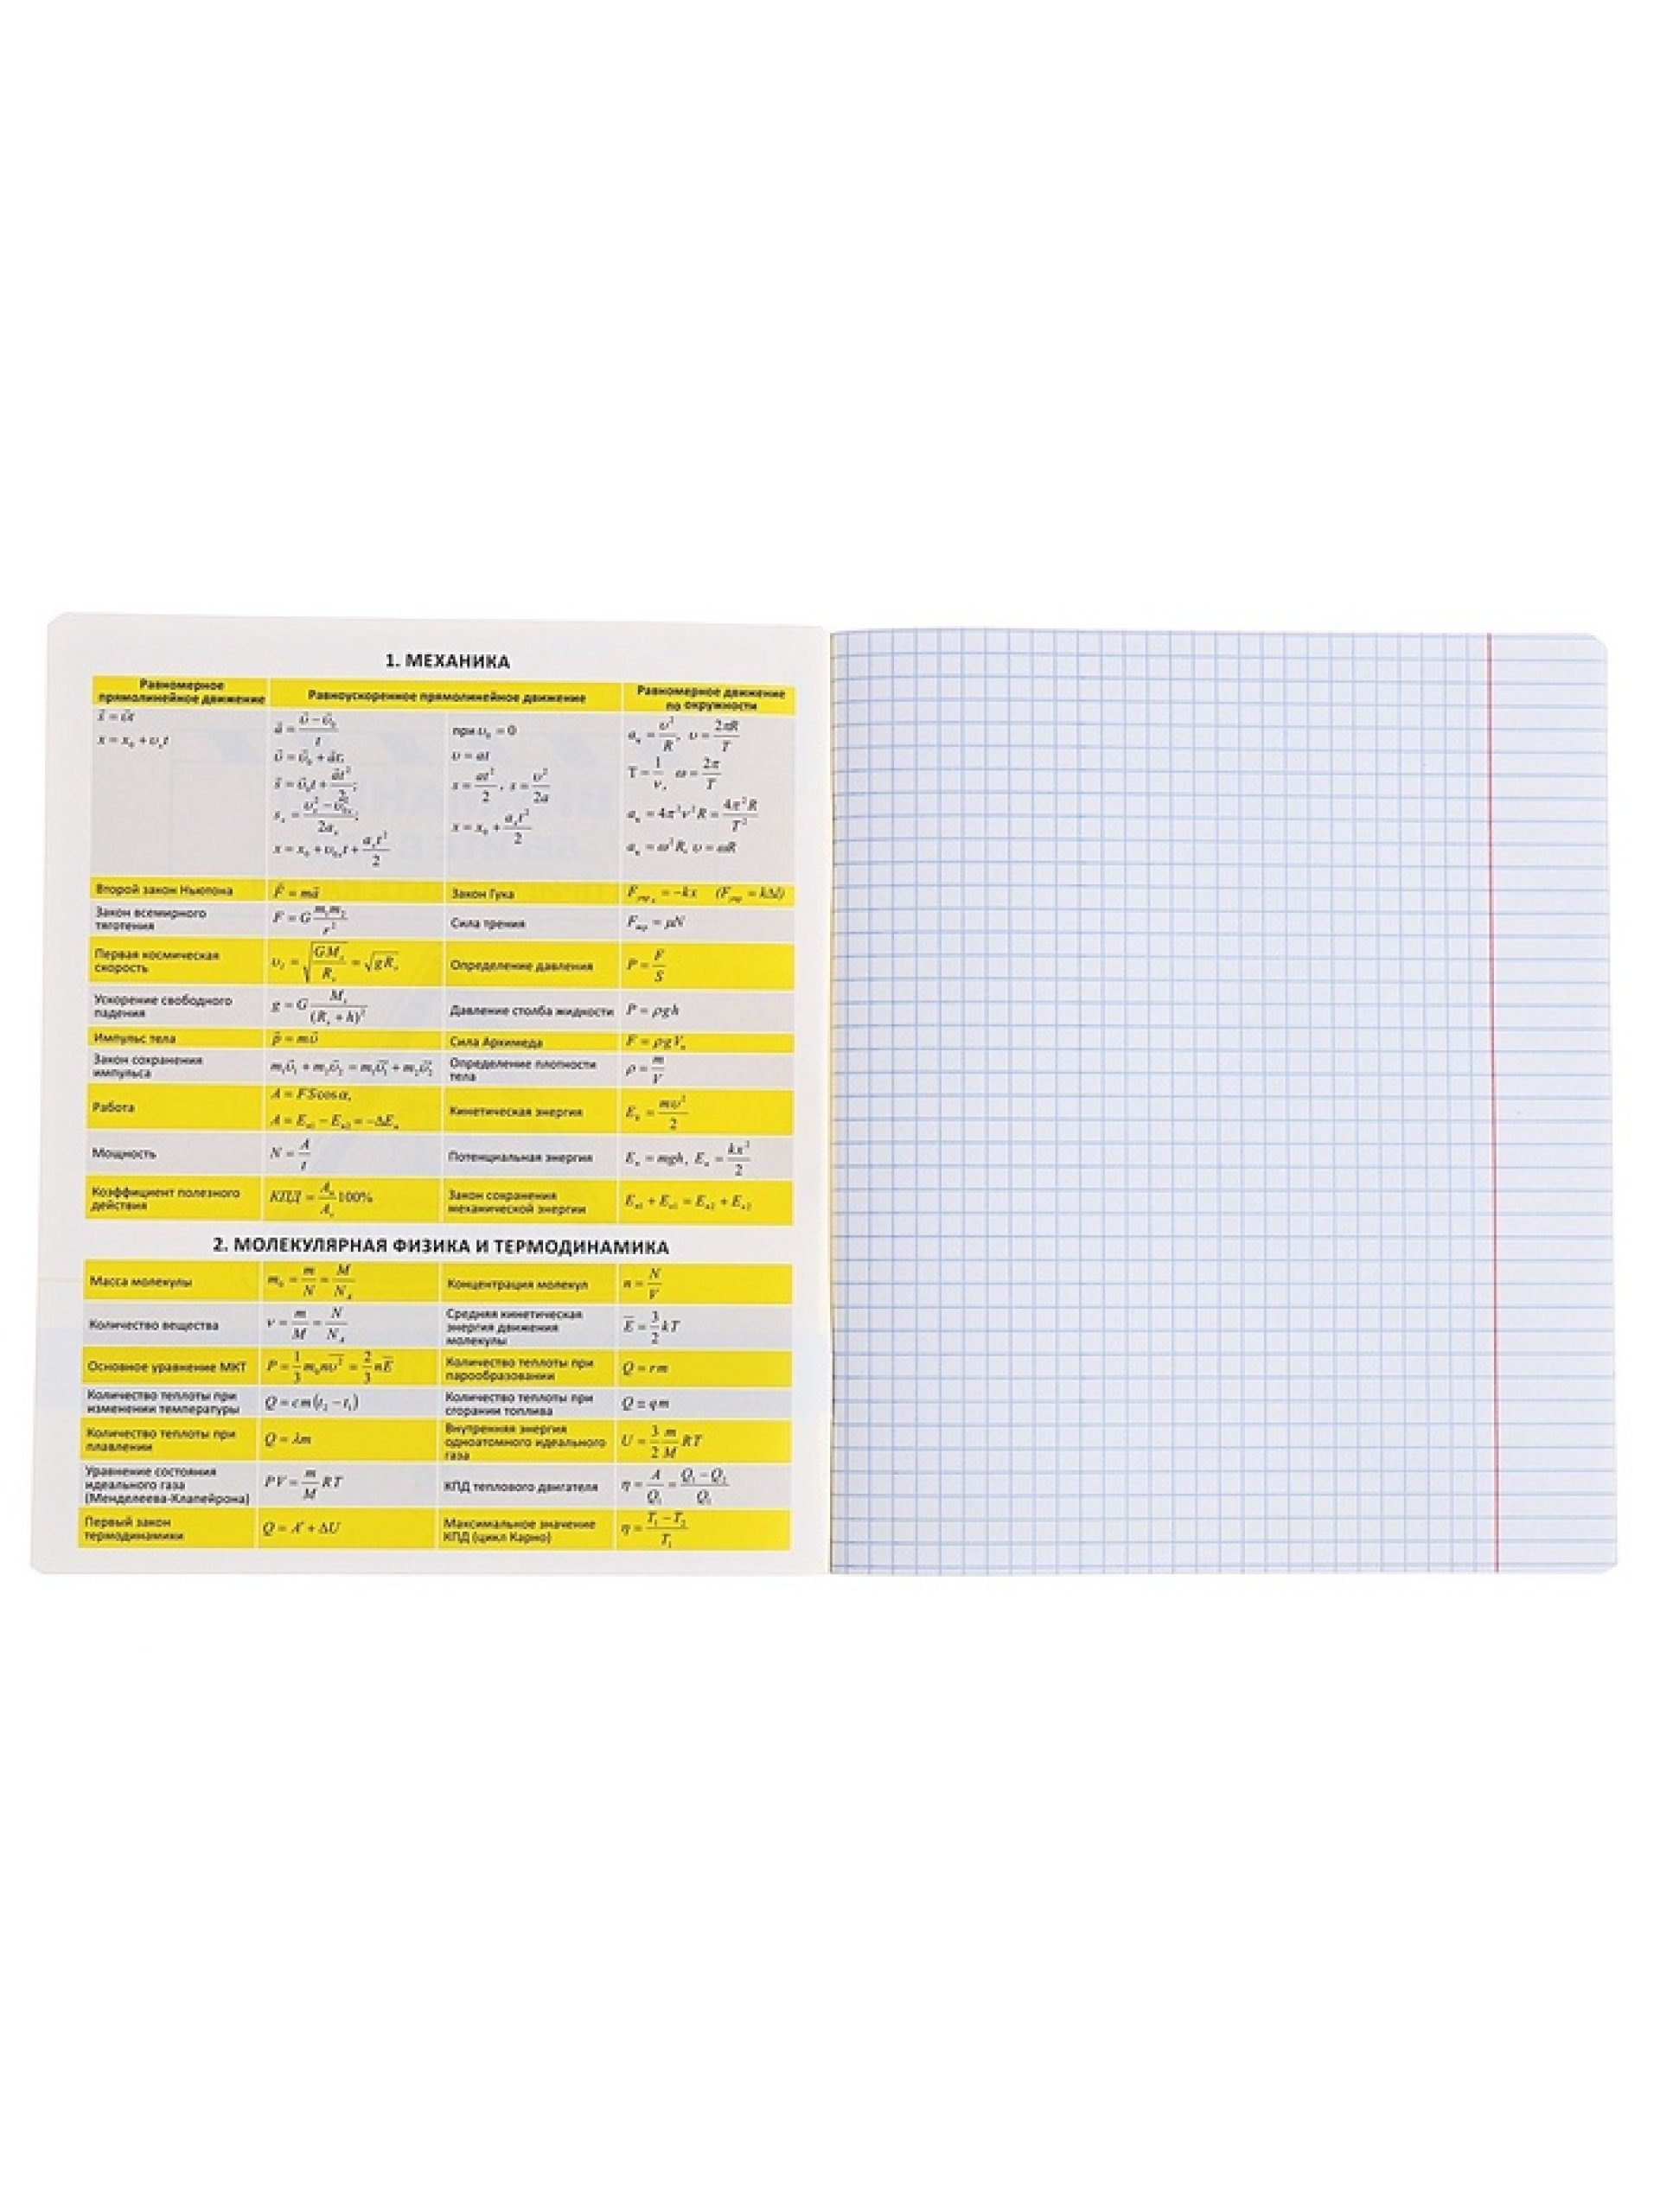 1. МЕХАНИКА
Равномерное
прямолинейное движение
Равноускоренное прямолинейное движение
Равномерное движение
по окружности
s⃗ = υ⃗t
x = x₀ + υₓt
a⃗ = (υ⃗ − υ⃗₀)/t
υ⃗ = υ⃗₀ + a⃗t;
s⃗ = υ⃗₀t + a⃗t²/2;
sₓ = (υₓ² − υ₀ₓ²)/2aₓ;
x = x₀ + υ₀ₓt + aₓt²/2
при υ₀ = 0
υ = at
s = at²/2, s = υ²/2a
x = x₀ + aₓt²/2
aц = υ²/R, υ = 2πR/T
T = 1/ν, ω = 2π/T
aц = 4π²ν²R = 4π²R/T²
aц = ω²R, υ = ωR
Второй закон Ньютона
F⃗ = ma⃗
Закон Гука
Fупр x = −kx (Fупр = kΔl)
Закон всемирного
тяготения
F = G m₁m₂/r²
Сила трения
Fтр = μN
Первая космическая
скорость
υI = √(GMз/Rз) = √gRз
Определение давления
P = F/S
Ускорение свободного
падения
g = G Mз/(Rз + h)²
Давление столба жидкости
P = ρgh
Импульс тела
p⃗ = mυ⃗
Сила Архимеда
F = ρgVп
Закон сохранения
импульса
m₁υ⃗₁ + m₂υ⃗₂ = m₁υ⃗₁' + m₂υ⃗₂'
Определение плотности
тела
ρ = m/V
Работа
A = FS cos α,
A = Eп1 − Eп2 = −ΔEп
Кинетическая энергия
Eк = mυ²/2
Мощность
N = A/t
Потенциальная энергия
Eп = mgh, Eп = kx²/2
Коэффициент полезного
действия
КПД = Aп/Aз 100%
Закон сохранения
механической энергии
Eк1 + Eп1 = Eк2 + Eп2
2. МОЛЕКУЛЯРНАЯ ФИЗИКА И ТЕРМОДИНАМИКА
Масса молекулы
m₀ = m/N = M/N_A
Концентрация молекул
n = N/V
Количество вещества
ν = m/M = N/N_A
Средняя кинетическая
энергия движения
молекулы
E̅ = 3/2 kT
Основное уравнение МКТ
P = 1/3 m₀nυ̅² = 2/3 nE̅
Количество теплоты при
парообразовании
Q = rm
Количество теплоты при
изменении температуры
Q = cm(t₂ − t₁)
Количество теплоты при
сгорании топлива
Q = qm
Количество теплоты при
плавлении
Q = λm
Внутренняя энергия
одноатомного идеального
газа
U = 3/2 m/M RT
Уравнение состояния
идеального газа
(Менделеева-Клапейрона)
PV = m/M RT
КПД теплового двигателя
η = A/Q₁ = (Q₁ − Q₂)/Q₁
Первый закон
термодинамики
Q = A' + ΔU
Максимальное значение
КПД (цикл Карно)
η = (T₁ − T₂)/T₁